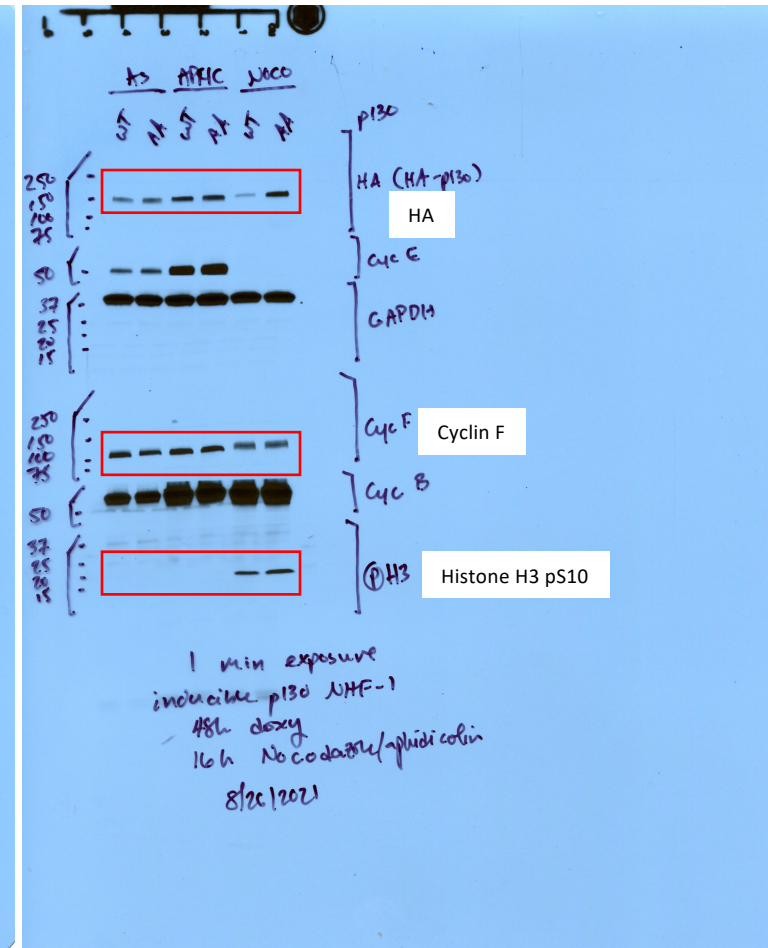 6 5 4 3 2 1
As APHIC NOCO
WT AA WT AA WT AA
p130
250
150
100
75
HA (HA-p130)
HA
50
Cyc E
37
25
20
15
GAPDH
250
150
100
75
Cyc F
Cyclin F
50
Cyc B
37
25
20
15
pH3
Histone H3 pS10
1 min exposure
inducible p130 NHF-1
48h doxy
16h Nocodazole/aphidicolin
8/26/2021